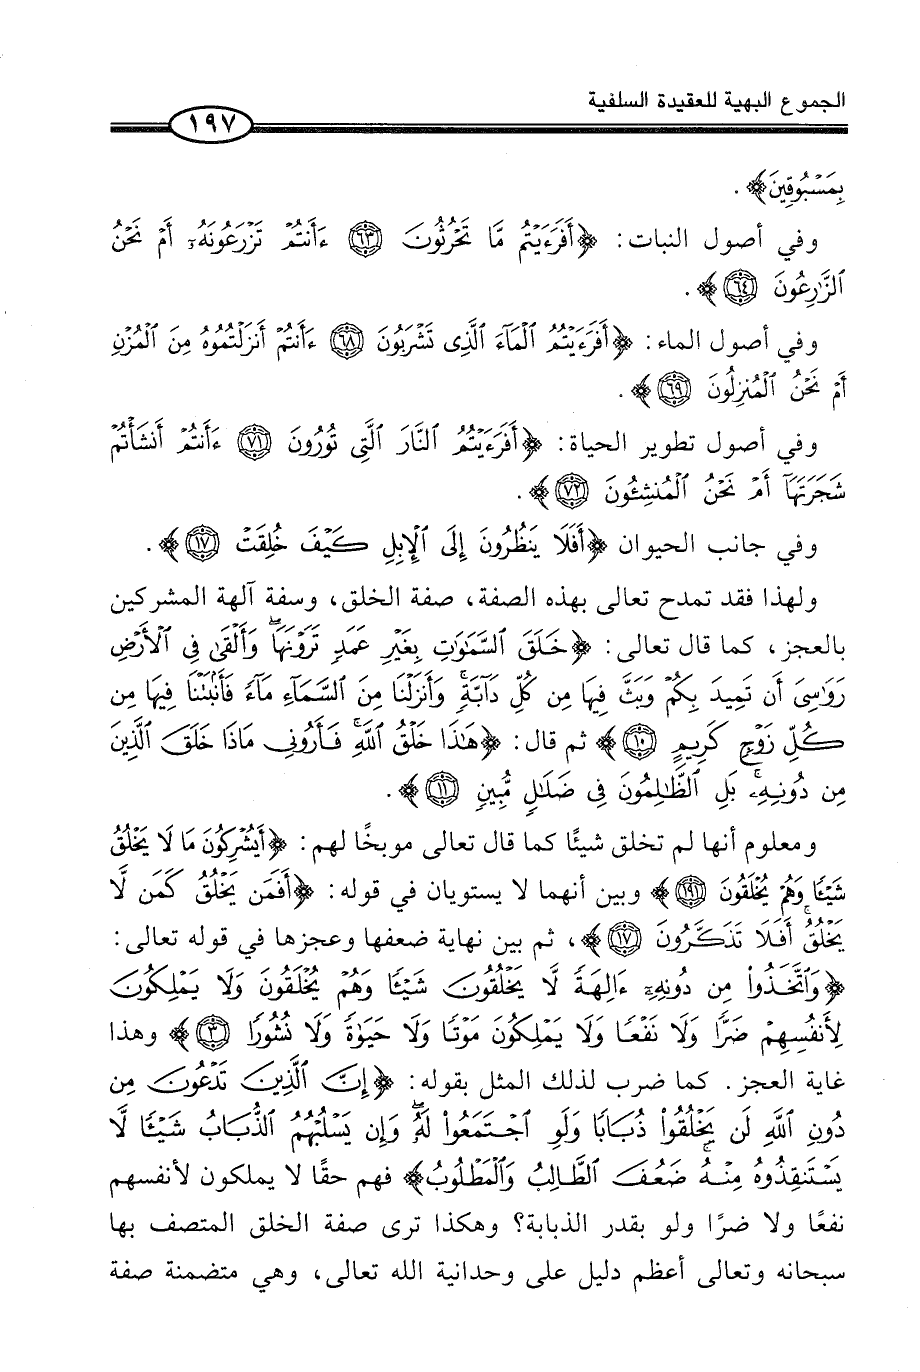 الجموع البهية للعقيدة السلفية
١٩٧
بِمَسْبُوقِينَ﴾ .
وفي أصول النبات: ﴿أَفَرَءَيْتُم مَّا تَحْرُثُونَ ﴿٦٣﴾ ءَأَنتُمْ تَزْرَعُونَهُۥٓ أَمْ نَحْنُ
ٱلزَّٰرِعُونَ ﴿٦٤﴾﴾ .
وفي أصول الماء: ﴿أَفَرَءَيْتُمُ ٱلْمَآءَ ٱلَّذِى تَشْرَبُونَ ﴿٦٨﴾ ءَأَنتُمْ أَنزَلْتُمُوهُ مِنَ ٱلْمُزْنِ
أَمْ نَحْنُ ٱلْمُنزِلُونَ ﴿٦٩﴾﴾ .
وفي أصول تطوير الحياة: ﴿أَفَرَءَيْتُمُ ٱلنَّارَ ٱلَّتِى تُورُونَ ﴿٧١﴾ ءَأَنتُمْ أَنشَأْتُمْ
شَجَرَتَهَآ أَمْ نَحْنُ ٱلْمُنشِـُٔونَ ﴿٧٢﴾﴾ .
وفي جانب الحيوان ﴿أَفَلَا يَنظُرُونَ إِلَى ٱلْإِبِلِ كَيْفَ خُلِقَتْ ﴿١٧﴾﴾ .
ولهذا فقد تمدح تعالى بهذه الصفة، صفة الخلق، وسفة آلهة المشركين
بالعجز، كما قال تعالى: ﴿خَلَقَ ٱلسَّمَٰوَٰتِ بِغَيْرِ عَمَدٍ تَرَوْنَهَا ۖ وَأَلْقَىٰ فِى ٱلْأَرْضِ
رَوَٰسِىَ أَن تَمِيدَ بِكُمْ وَبَثَّ فِيهَا مِن كُلِّ دَآبَّةٍ ۚ وَأَنزَلْنَا مِنَ ٱلسَّمَآءِ مَآءً فَأَنۢبَتْنَا فِيهَا مِن
كُلِّ زَوْجٍ كَرِيمٍ ﴿١٠﴾﴾ ثم قال: ﴿هَٰذَا خَلْقُ ٱللَّهِ فَأَرُونِى مَاذَا خَلَقَ ٱلَّذِينَ
مِن دُونِهِۦ ۚ بَلِ ٱلظَّٰلِمُونَ فِى ضَلَٰلٍ مُّبِينٍ ﴿١١﴾﴾ .
ومعلوم أنها لم تخلق شيئًا كما قال تعالى موبخًا لهم: ﴿أَيُشْرِكُونَ مَا لَا يَخْلُقُ
شَيْـًٔا وَهُمْ يُخْلَقُونَ ﴿١٩١﴾﴾ وبين أنهما لا يستويان في قوله: ﴿أَفَمَن يَخْلُقُ كَمَن لَّا
يَخْلُقُ ۗ أَفَلَا تَذَكَّرُونَ ﴿١٧﴾﴾، ثم بين نهاية ضعفها وعجزها في قوله تعالى:
﴿وَٱتَّخَذُوا۟ مِن دُونِهِۦٓ ءَالِهَةً لَّا يَخْلُقُونَ شَيْـًٔا وَهُمْ يُخْلَقُونَ وَلَا يَمْلِكُونَ
لِأَنفُسِهِمْ ضَرًّا وَلَا نَفْعًا وَلَا يَمْلِكُونَ مَوْتًا وَلَا حَيَوٰةً وَلَا نُشُورًا ﴿٣﴾﴾ وهذا
غاية العجز. كما ضرب لذلك المثل بقوله: ﴿إِنَّ ٱلَّذِينَ تَدْعُونَ مِن
دُونِ ٱللَّهِ لَن يَخْلُقُوا۟ ذُبَابًا وَلَوِ ٱجْتَمَعُوا۟ لَهُۥ ۖ وَإِن يَسْلُبْهُمُ ٱلذُّبَابُ شَيْـًٔا لَّا
يَسْتَنقِذُوهُ مِنْهُ ۚ ضَعُفَ ٱلطَّالِبُ وَٱلْمَطْلُوبُ﴾ فهم حقًا لا يملكون لأنفسهم
نفعًا ولا ضرًا ولو بقدر الذبابة؟ وهكذا ترى صفة الخلق المتصف بها
سبحانه وتعالى أعظم دليل على وحدانية الله تعالى، وهي متضمنة صفة